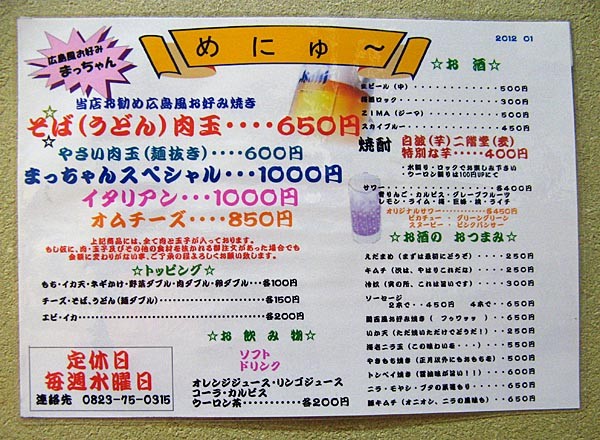 広島風お好み
まっちゃん
めにゅ～
2012 01
当店お勧め広島風お好み焼き
そば(うどん)肉玉････650円
やさい肉玉(麺抜き)････600円
まっちゃんスペシャル･･･1000円
イタリアン･･･1000円
オムチーズ････850円
上記商品には、全て肉と玉子が入っております。
もし仮に、肉・玉子及びその他の食材を抜かれる御注文があった場合でも
金額に変わりがない事、ご了承の程よろしくお願い致します。
☆トッピング☆
もち・イカ天・ネギかけ・野菜ダブル・肉ダブル・卵ダブル･･･各100円
チーズ・そば、うどん(麺ダブル)･･････････各150円
エビ・イカ･･････････各200円
☆お飲み物☆
ソフト
ドリンク
オレンジジュース・リンゴジュース
コーラ・カルピス
ウーロン茶･･････････各200円
定休日
毎週水曜日
連絡先 0823-75-0315
☆お酒☆
生ビール(中)･･････････500円
ロック･･････････300円
ZIMA(ジーマ)･･････････500円
スカイブルー･･････････450円
焼酎
白波(芋)二階堂(麦)
特別な芋･････400円
・水割り・ロックでお楽しみ下さい
・ウーロン割りは100円UPにて
サワー･･････････各400円
青りんご・カルピス・グレープフルーツ
レモン・ライム・梅・巨峰・桃・ライチ
オリジナルサワー･･････････各450円
ピカチュー・グリーングリーン
スヌーピー・ピンクパンサー
☆お酒の おつまみ☆
えだまめ(まずは最初にどうぞ)････250円
キムチ(次は、やはりこれだな)････250円
冷奴(実の所、これは旨いです)････300円
ソーセージ
2本で･･450円 4本で･･650円
関西風お好み焼き(フゥワァッ)･････650円
いか天(ただ焼いただけでどうだ!)･･･250円
ニラ玉(この味わいを･･･)･････350円
やきもち(正月以外にもおもちを)･･･500円
トンペイ焼き(醤油味が旨い!!)････600円
ニラ・モヤシ・ブタの炒め････650円
豚キムチ(オニオン、ニラの風味も)････650円